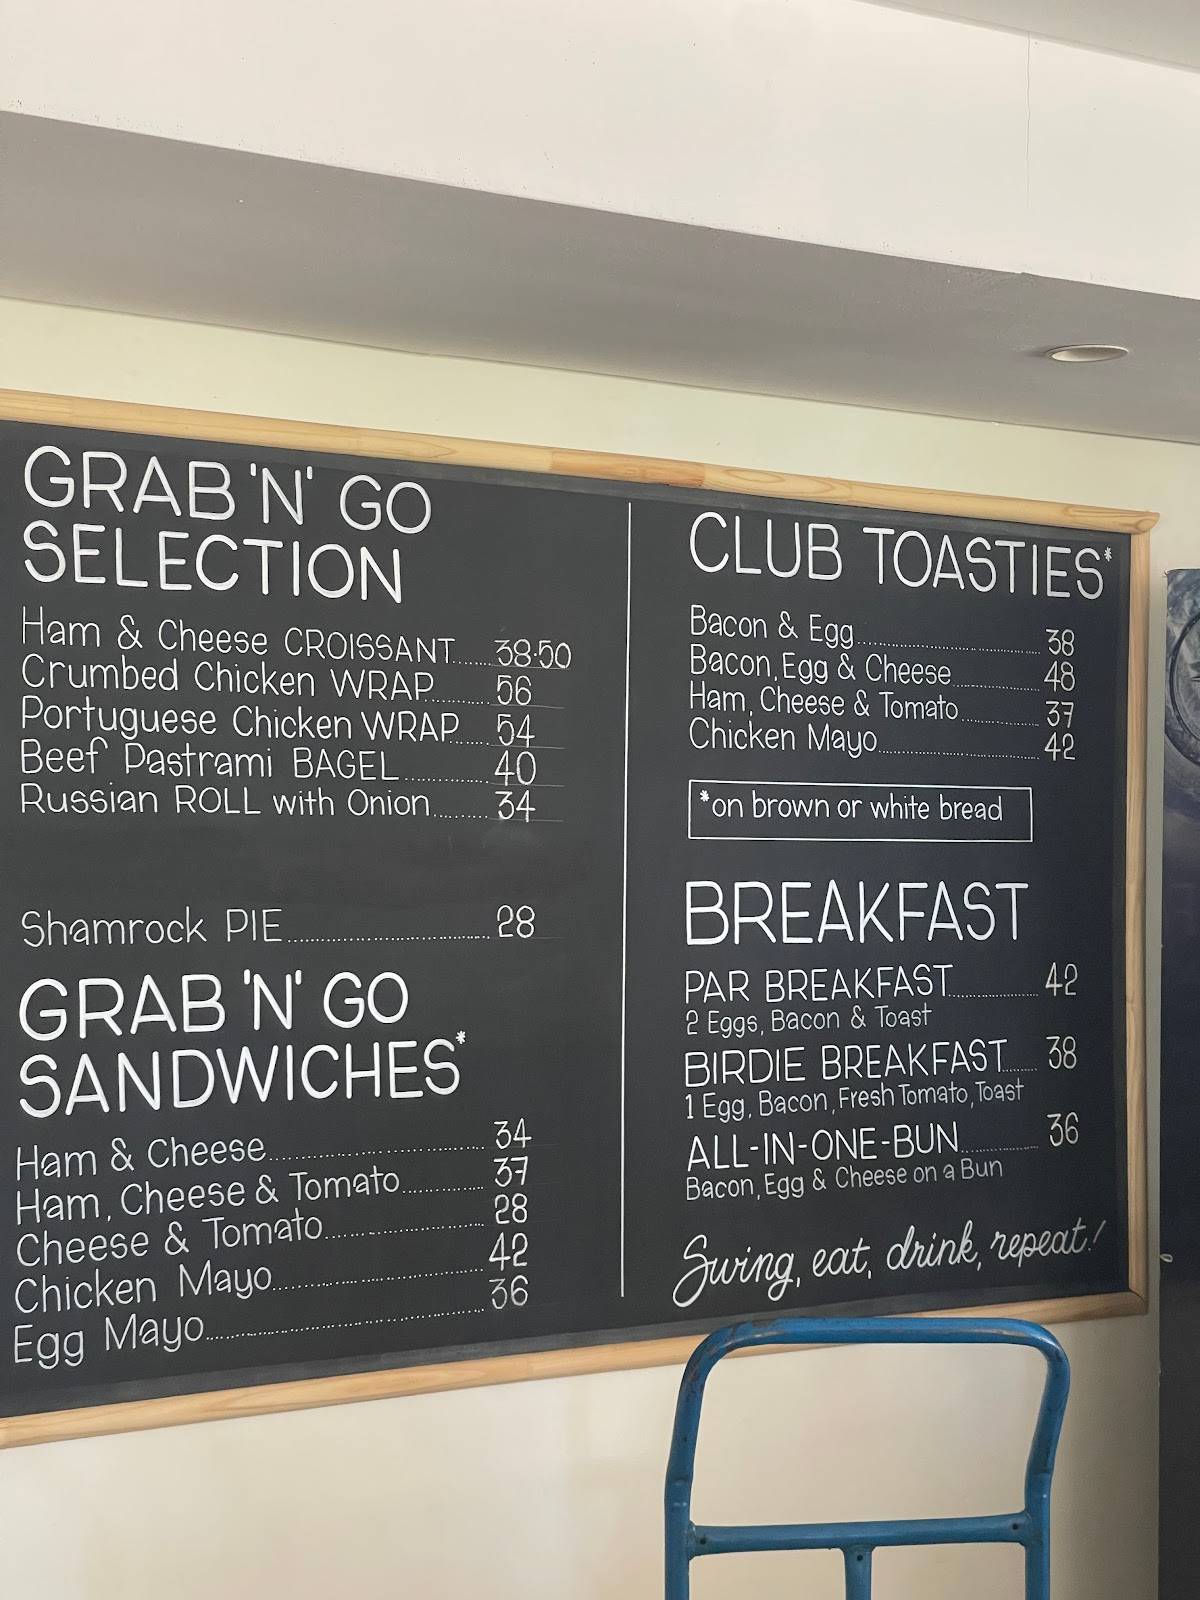 GRAB 'N' GO
SELECTION
Ham & Cheese CROISSANT......38.50
Crumbed Chicken WRAP......56
Portuguese Chicken WRAP......54
Beef Pastrami BAGEL......40
Russian ROLL with Onion......34
Shamrock PIE......28
GRAB 'N' GO
SANDWICHES*
Ham & Cheese......34
Ham, Cheese & Tomato......37
Cheese & Tomato......28
Chicken Mayo......42
Egg Mayo......36
CLUB TOASTIES*
Bacon & Egg......38
Bacon, Egg & Cheese......48
Ham, Cheese & Tomato......37
Chicken Mayo......42
*on brown or white bread
BREAKFAST
PAR BREAKFAST......42
2 Eggs, Bacon & Toast
BIRDIE BREAKFAST......38
1 Egg, Bacon, Fresh Tomato, Toast
ALL-IN-ONE-BUN......36
Bacon, Egg & Cheese on a Bun
Swing, eat, drink, repeat!